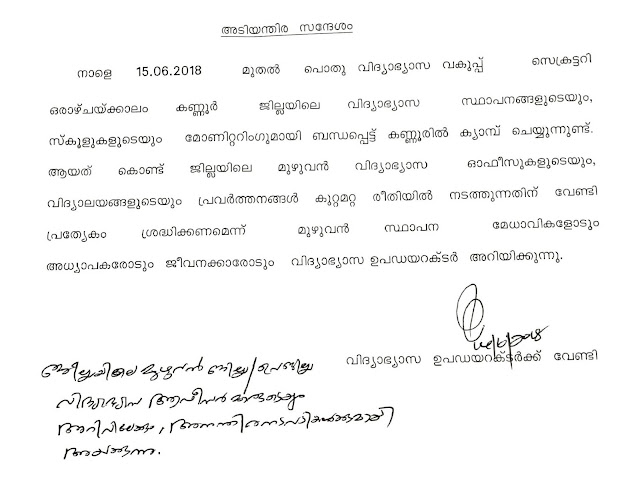 അടിയന്തിര സന്ദേശം
നാളെ 15.06.2018 മുതൽ പൊതു വിദ്യാഭ്യാസ വകുപ്പ് സെക്രട്ടറി
ഒരാഴ്ചയ്ക്കാലം കണ്ണൂർ ജില്ലയിലെ വിദ്യാഭ്യാസ സ്ഥാപനങ്ങളുടെയും,
സ്കൂളുകളുടെയും മോണിറ്ററിംഗുമായി ബന്ധപ്പെട്ട് കണ്ണൂരിൽ ക്യാമ്പ് ചെയ്യുന്നുണ്ട്.
ആയത് കൊണ്ട് ജില്ലയിലെ മുഴുവൻ വിദ്യാഭ്യാസ ഓഫീസുകളുടെയും,
വിദ്യാലയങ്ങളുടെയും പ്രവർത്തനങ്ങൾ കുറ്റമറ്റ രീതിയിൽ നടത്തുന്നതിന് വേണ്ടി
പ്രത്യേകം ശ്രദ്ധിക്കണമെന്ന് മുഴുവൻ സ്ഥാപന മേധാവികളോടും
അധ്യാപകരോടും ജീവനക്കാരോടും വിദ്യാഭ്യാസ ഉപഡയറക്ടർ അറിയിക്കുന്നു.
വിദ്യാഭ്യാസ ഉപഡയറക്ടർക്ക് വേണ്ടി
ജില്ലയിലെ മുഴുവൻ ജില്ലാ/
വിദ്യാഭ്യാസ ആഫീസർമാരുടെയും
അയക്കുന്നു.